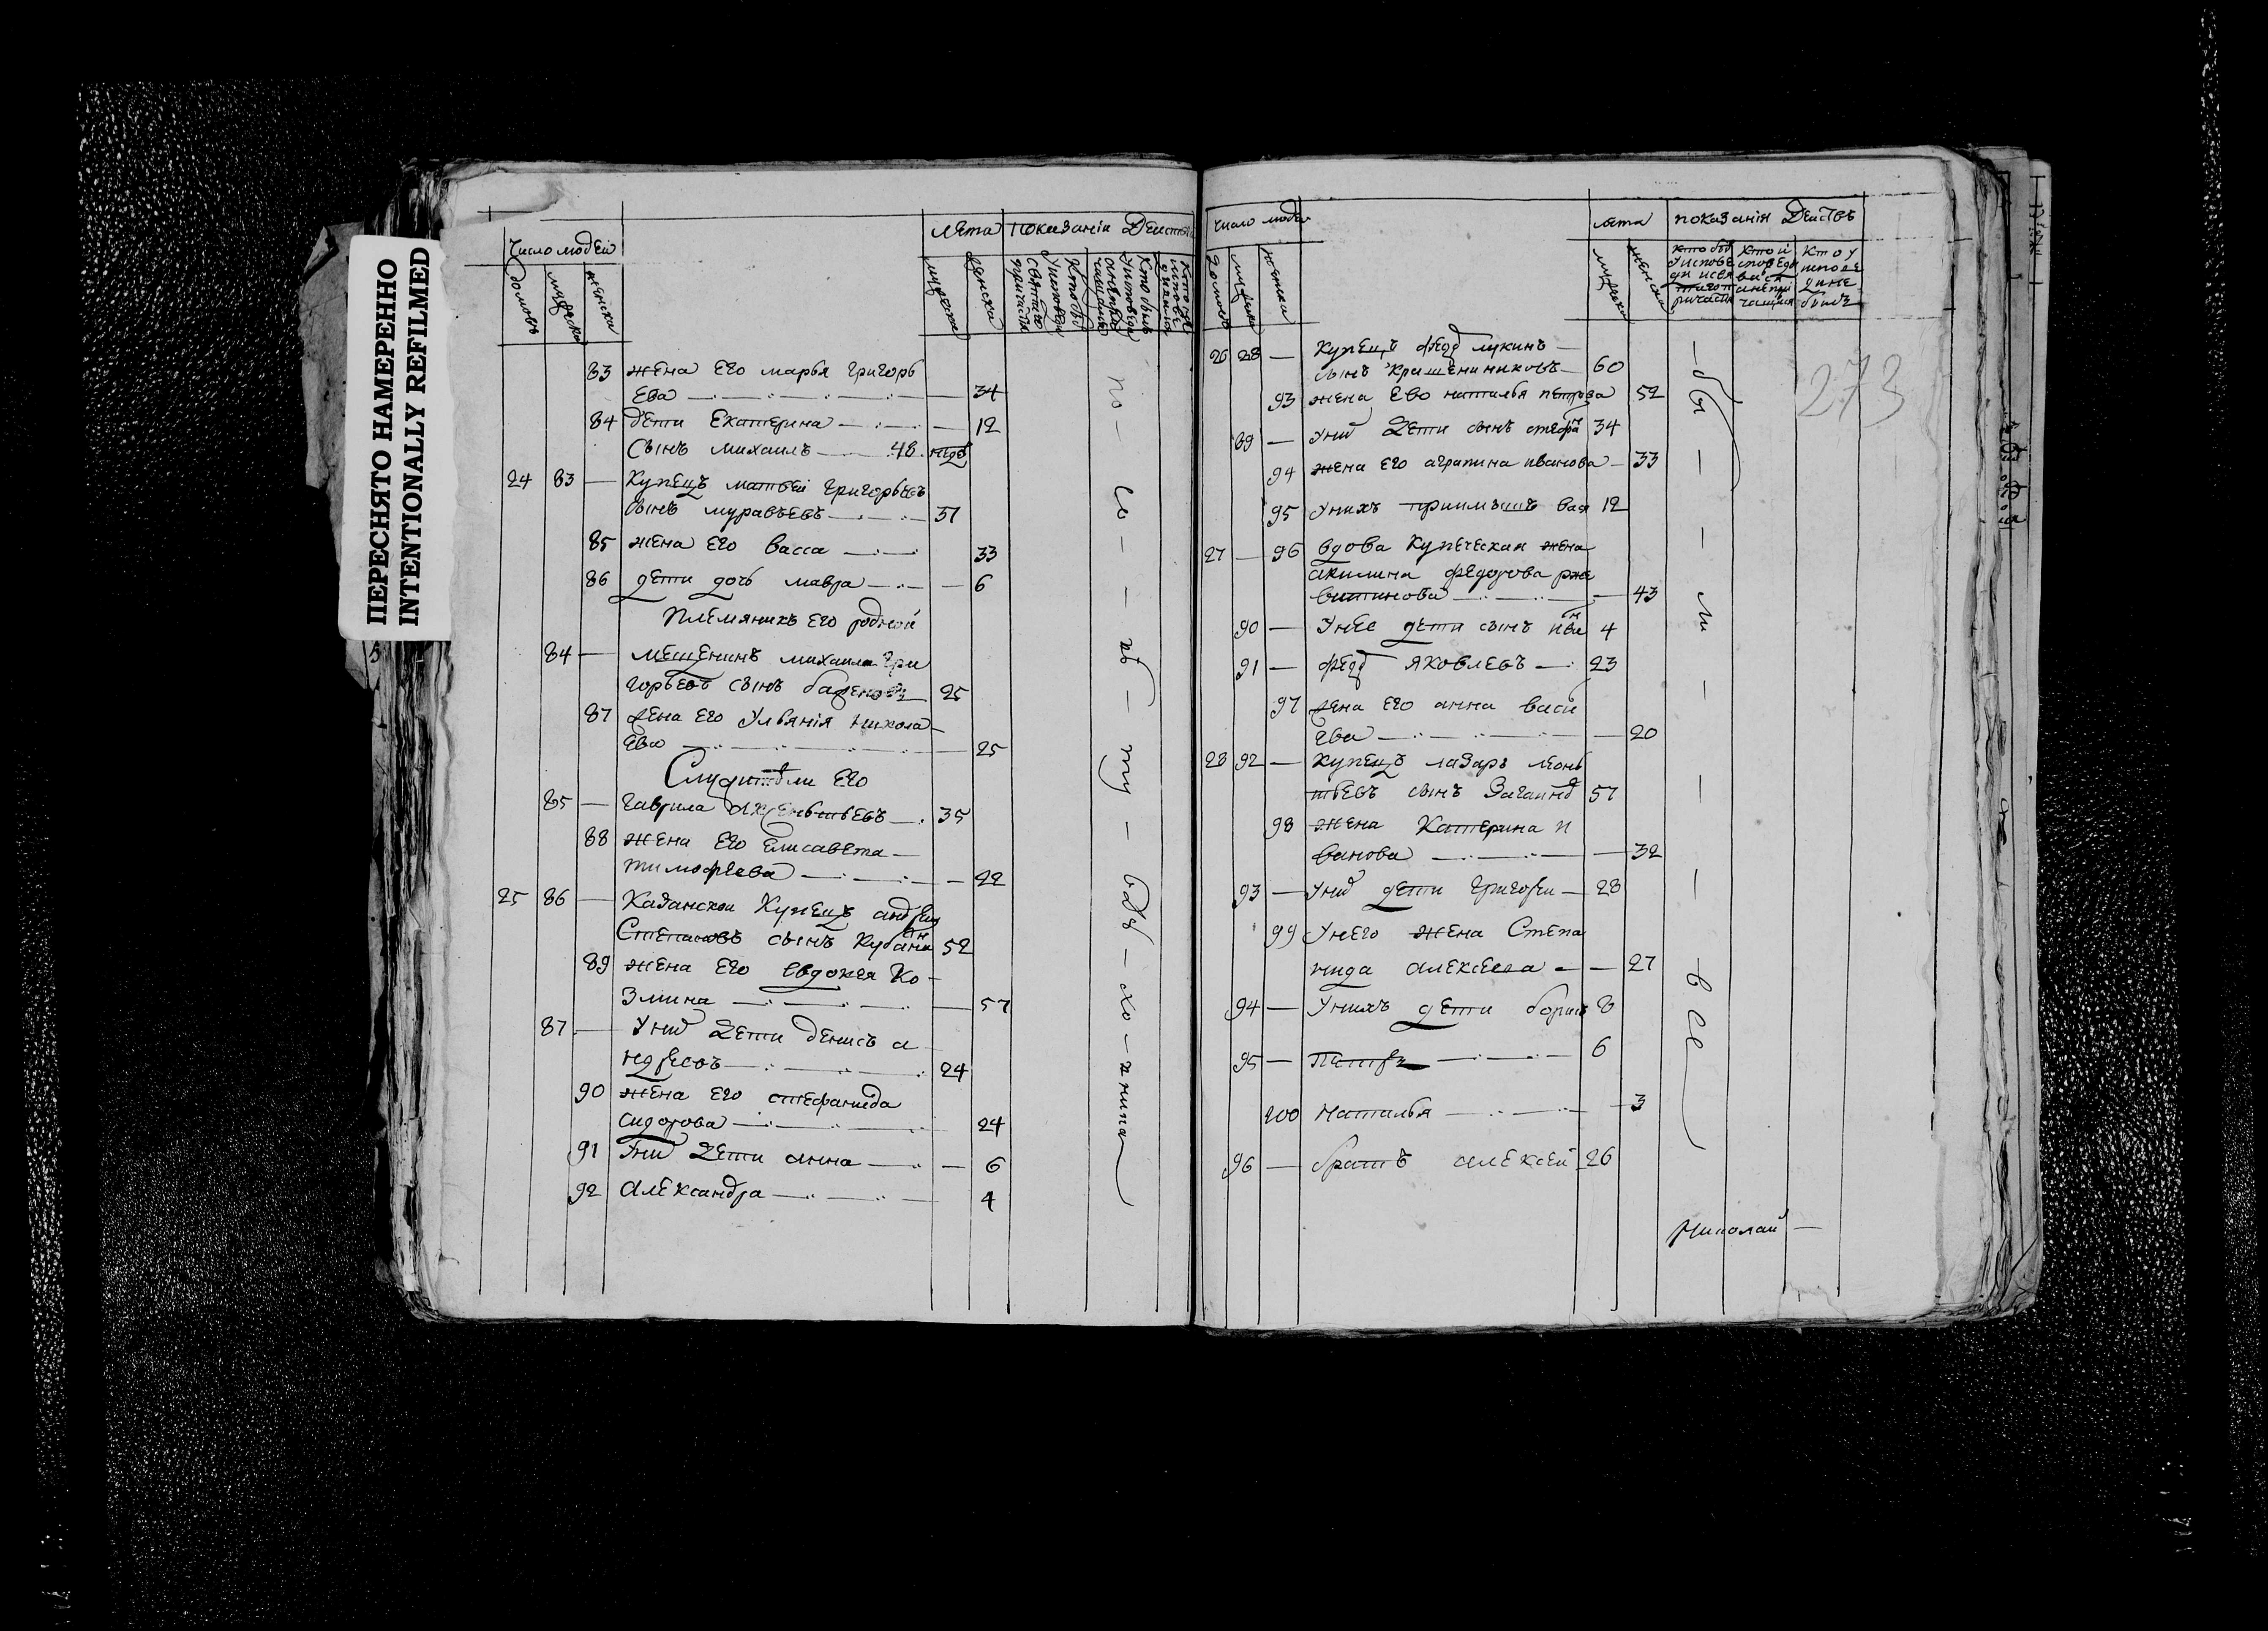 ПЕРЕСНЯТО НАМЕРЕННО
INTENTIONALLY REFILMED
Число людей
лѣта
показаніи Деистви
домовъ
мужеска
женска
мужеска
женска
83 жена его марья григорь
ева 34
84 дети Екатерина 12
Сынъ михаилъ
24 83 Купецъ матвеи григорьевъ
сынъ муравьевъ 37
85 жена его васса 33
86 дети дочь мавра 6
племяникъ его родной
84 мещенинъ михаила гри
горьевъ сынъ 25
87 жена его Ульянія никола
ева 25
Служители его
85 гаврила 35
88 жена его Елисавета
тимофеева 22
25 86 Казанскои Купецъ андреи
Степановъ сынъ 52
89 жена его евдокея Ко
змина 57
87 У них дети денисъ а
ндреевъ 24
90 жена его стефанида
сидорова 24
91 У них дети анна 6
92 Александра 4
число людеи
лѣта
показанія Деиствъ
домовъ
мужеска
женска
мужеска
женска
кто был
у испове
ди и свя
кто и
споведи
кто у
испове
ди не
былъ
273
26 88 Купецъ фед лукинъ
сынъ крашениниковъ 60
93 жена ево наталья петрова 52
89 У них дети сынъ стефа 34
94 жена его аграпина иванова 33
95 У нихъ приимышъ вася 12
27 96 вдова купеческая жена
акилина федорова рже
витинова 43
90 У нее дети сынъ иван 4
91 фед яковлевъ 23
97 жена его анна васи
ева 20
28 92 купецъ лазарь леонь
тьевъ сынъ 57
98 жена Катерина и
ванова 32
93 У них дети григореи 28
99 У него жена Степа
нида алексеева 27
94 У нихъ дети борисъ 8
95 петръ 6
100 наталья 3
96 братъ алексеи 26
Николаи